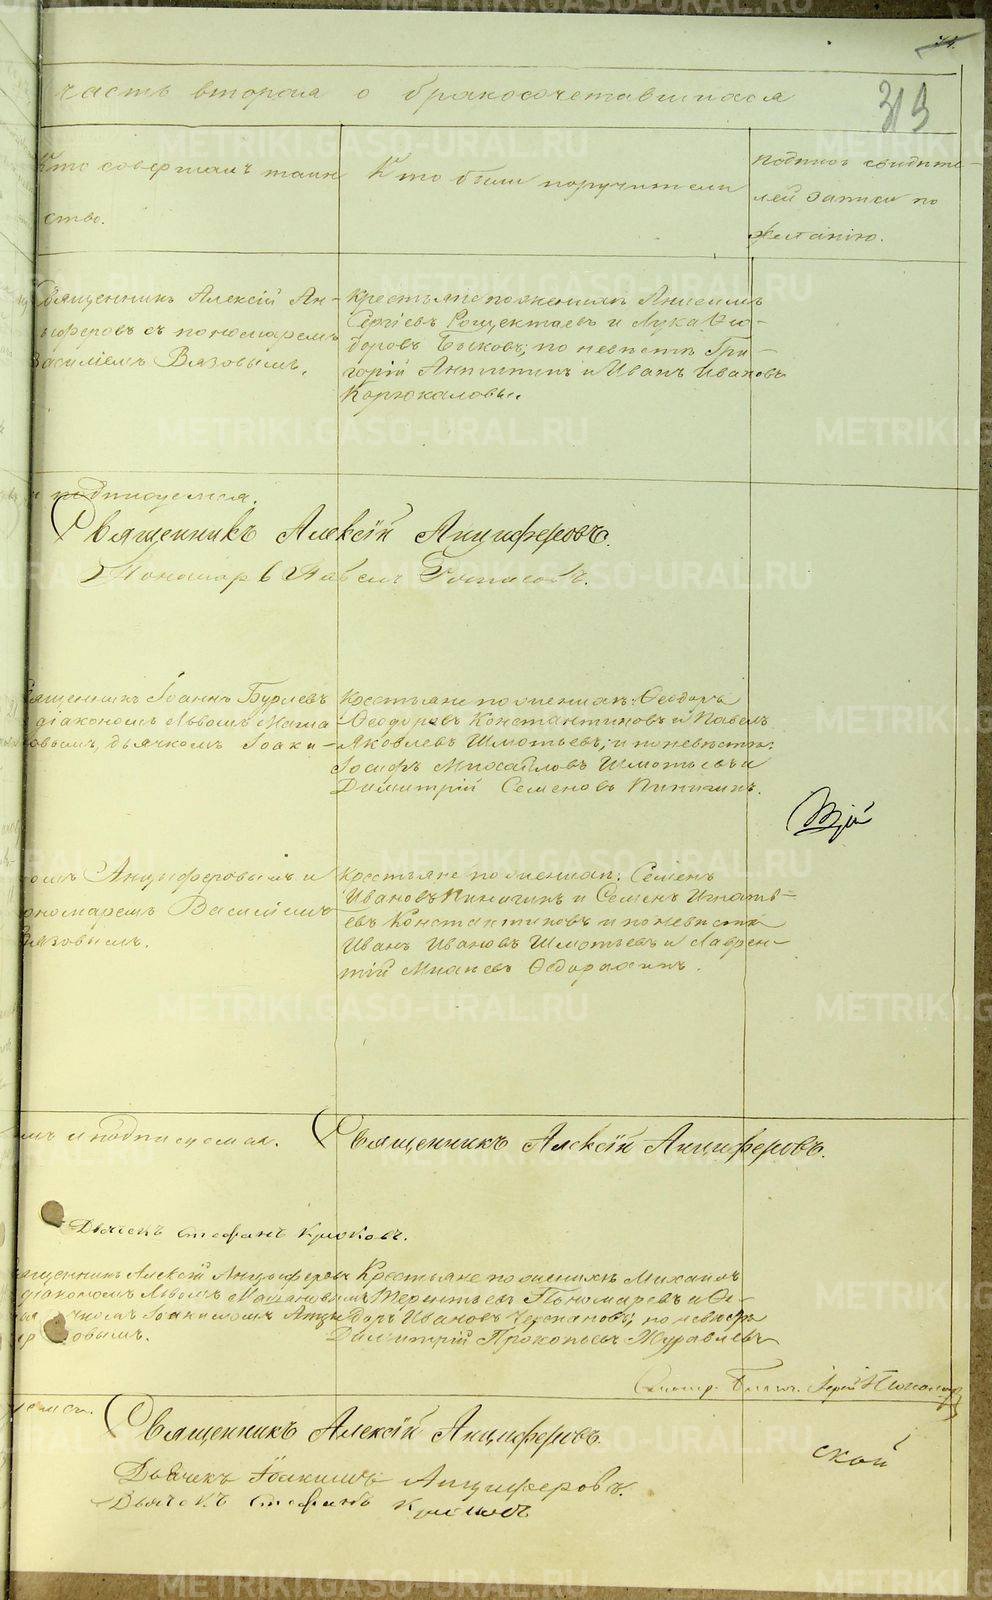 часть вторая о бракосочетавшихся
313
Кто совершалъ таин-
ство.
Кто были поручители
подпись свидѣте-
лей записи по
желанію.
Священникъ Алексій Ан-
циферовъ съ пономаремъ
Василіемъ Вязовымъ.
Крестьяне по женихѣ Анисимъ
Сергіевъ и Лука Ѳео-
доровъ Быковъ; по невѣстѣ Гри-
горій Антипинъ и Иванъ Ивановъ
Корюкаловы.
и подписуемся.
Священникъ Алексій Анциферовъ.
Пономарь Павелъ
Священникъ Іоаннъ Бурлевъ
съ діакономъ Львомъ Маша-
новымъ, дьячкомъ Іоаки-
Крестьяне по женихѣ: Ѳеодоръ
Ѳеодоровъ Константиновъ и Павелъ
Яковлевъ Шмотьевъ; и по невѣстѣ:
Іосифъ Михайловъ Шмотьевъ и
Димитрій Семеновъ Пинигинъ.
момъ Анциферовымъ и
пономаремъ Василіемъ
Вязовымъ.
Крестьяне по женихѣ: Семенъ
Ивановъ Пинигинъ и Семенъ Игнать-
евъ Константиновъ и по невѣстѣ
Иванъ Ивановъ Шмотьевъ и Лаврен-
тій Ѳедорахинъ.
емъ и подписуемся. Священникъ Алексій Анциферовъ.
Дьячекъ Стефанъ Крюковъ.
Священникъ Алексій Анциферовъ
діакономъ Львомъ Машановымъ
дьячкомъ Іоакимомъ Анци-
феровымъ.
Крестьяне по женихѣ Михаилъ
Терентьевъ Пономаревъ и Ѳе-
доръ Ивановъ Черепановъ; по невѣстѣ
Димитрій Прокопьевъ Журавлевъ
Священникъ Алексій Анциферовъ
Дьячекъ Іоакимъ Анциферовъ.
Дьячекъ Стефанъ Крюковъ
ской
METRIKI.GASO-URAL.RU